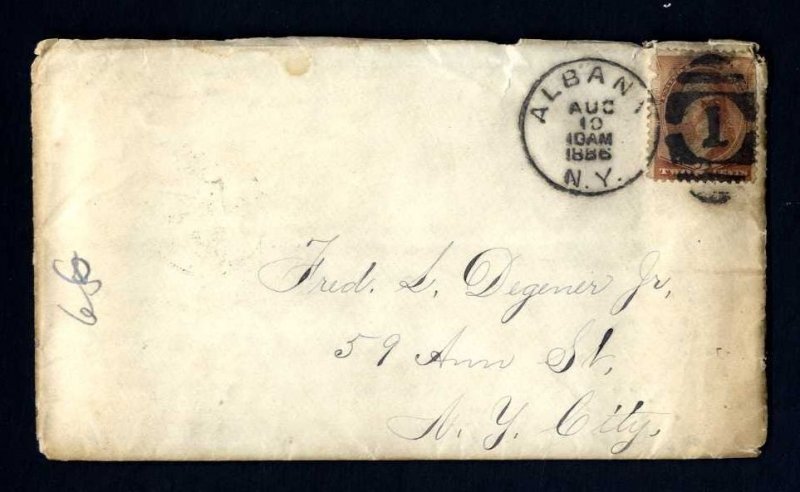 ALBANY
AUG
10
10AM
1886
N.Y.
1
Fred. L. Degener Jr,
59 Ann St,
N. Y. City,